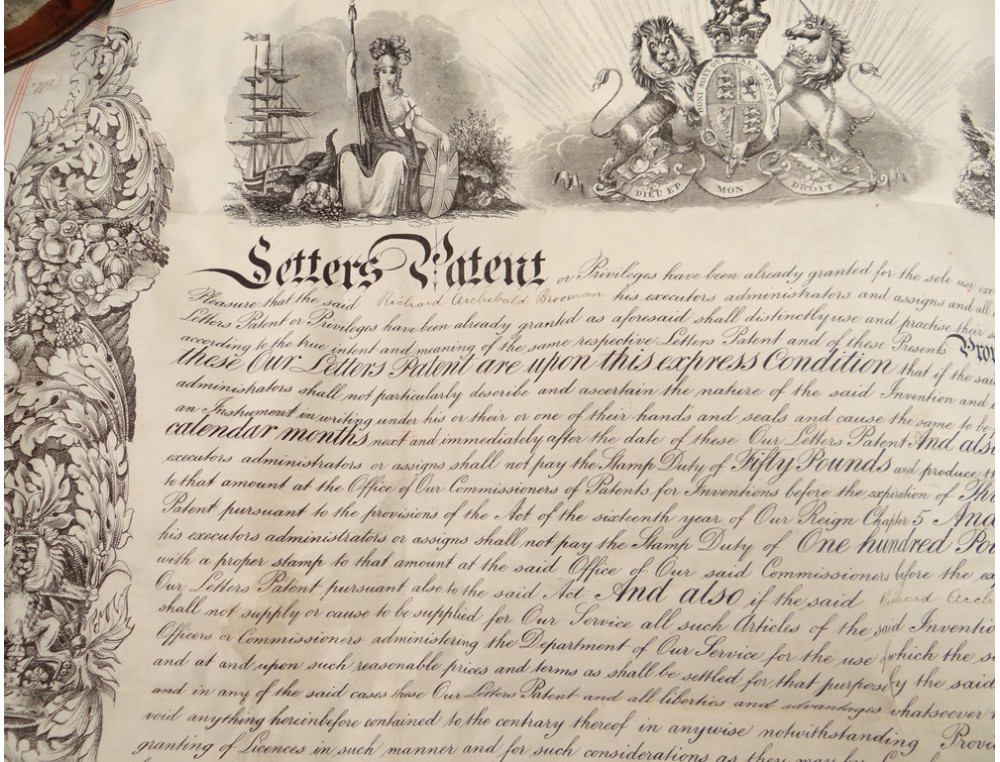 HONI SOIT QUI MAL Y PENSE
DIEU ET MON DROIT
Letters Patent or Privileges have been already granted for the sole use
Pleasure that the said Richard Archibald Brooman his executors administrators and assigns and all
Letters Patent or Privileges have been already granted as aforesaid shall distinctly use and practise their
according to the true intent and meaning of the same respective Letters Patent and of these Presents Prov
these Our Letters Patent are upon this express Condition that if the said
administrators shall not particularly describe and ascertain the nature of the said Invention and
an Instrument in writing under his or their or one of their hands and seals and cause the same to be
calendar months next and immediately after the date of these Our Letters Patent And also
executors administrators or assigns shall not pay the Stamp Duty of Fifty Pounds and produce th
to that amount at the Office of Our Commissioners of Patents for Inventions before the expiration of Thr
Patent pursuant to the provisions of the Act of the sixteenth year of Our Reign Chapter 5 And
his executors administrators or assigns shall not pay the Stamp Duty of One hundred Pou
with a proper stamp to that amount at the said Office of Our said Commissioners before the ex
Our Letters Patent pursuant also to the said Act And also if the said Richard Archi
shall not supply or cause to be supplied for Our Service all such Articles of the said Inventio
Officers or Commissioners administering the Department of Our Service for the use of which the s
and at and upon such reasonable prices and terms as shall be settled for that purpose by the said
and in any of the said cases these Our Letters Patent and all liberties and advantages whatsoever
void anything hereinbefore contained to the contrary thereof in anywise notwithstanding Provi
granting of Licences in such manner and for such considerations as they may by